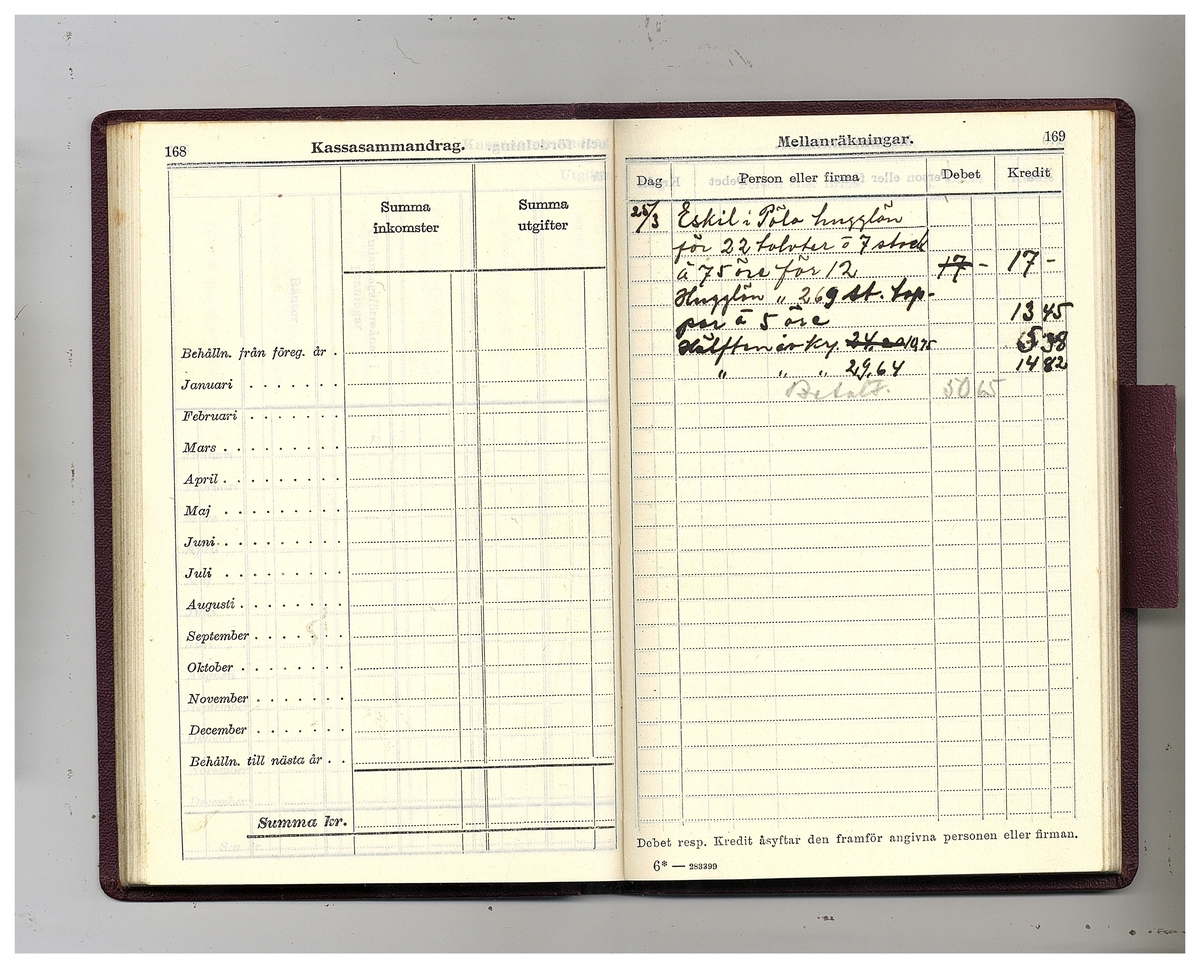 168
Kassasammandrag.
Summa inkomster
Summa utgifter
Behålln. från föreg. år .
Januari . . . . . . .
Februari . . . . . .
Mars . . . . . . . .
April . . . . . . . .
Maj . . . . . . . .
Juni . . . . . . . .
Juli . . . . . . . .
Augusti . . . . . . .
September . . . . . .
Oktober . . . . . . .
November . . . . . .
December . . . . . .
Behålln. till nästa år . .
Summa kr.
Mellanräkningar.
169
Dag Person eller firma Debet Kredit
25/3 Eskil i Pöla hugglön
för 22 tolvter à 7 stock
à 75 öre för 12 17 - 17 -
Hugglön " 269 st. top-
par à 5 öre 13 45
Hälften av ky. 10,75 5 38
" " " 29,64 14 82
Betalt. 50 65
Debet resp. Kredit åsyftar den framför angivna personen eller firman.
6* — 283399